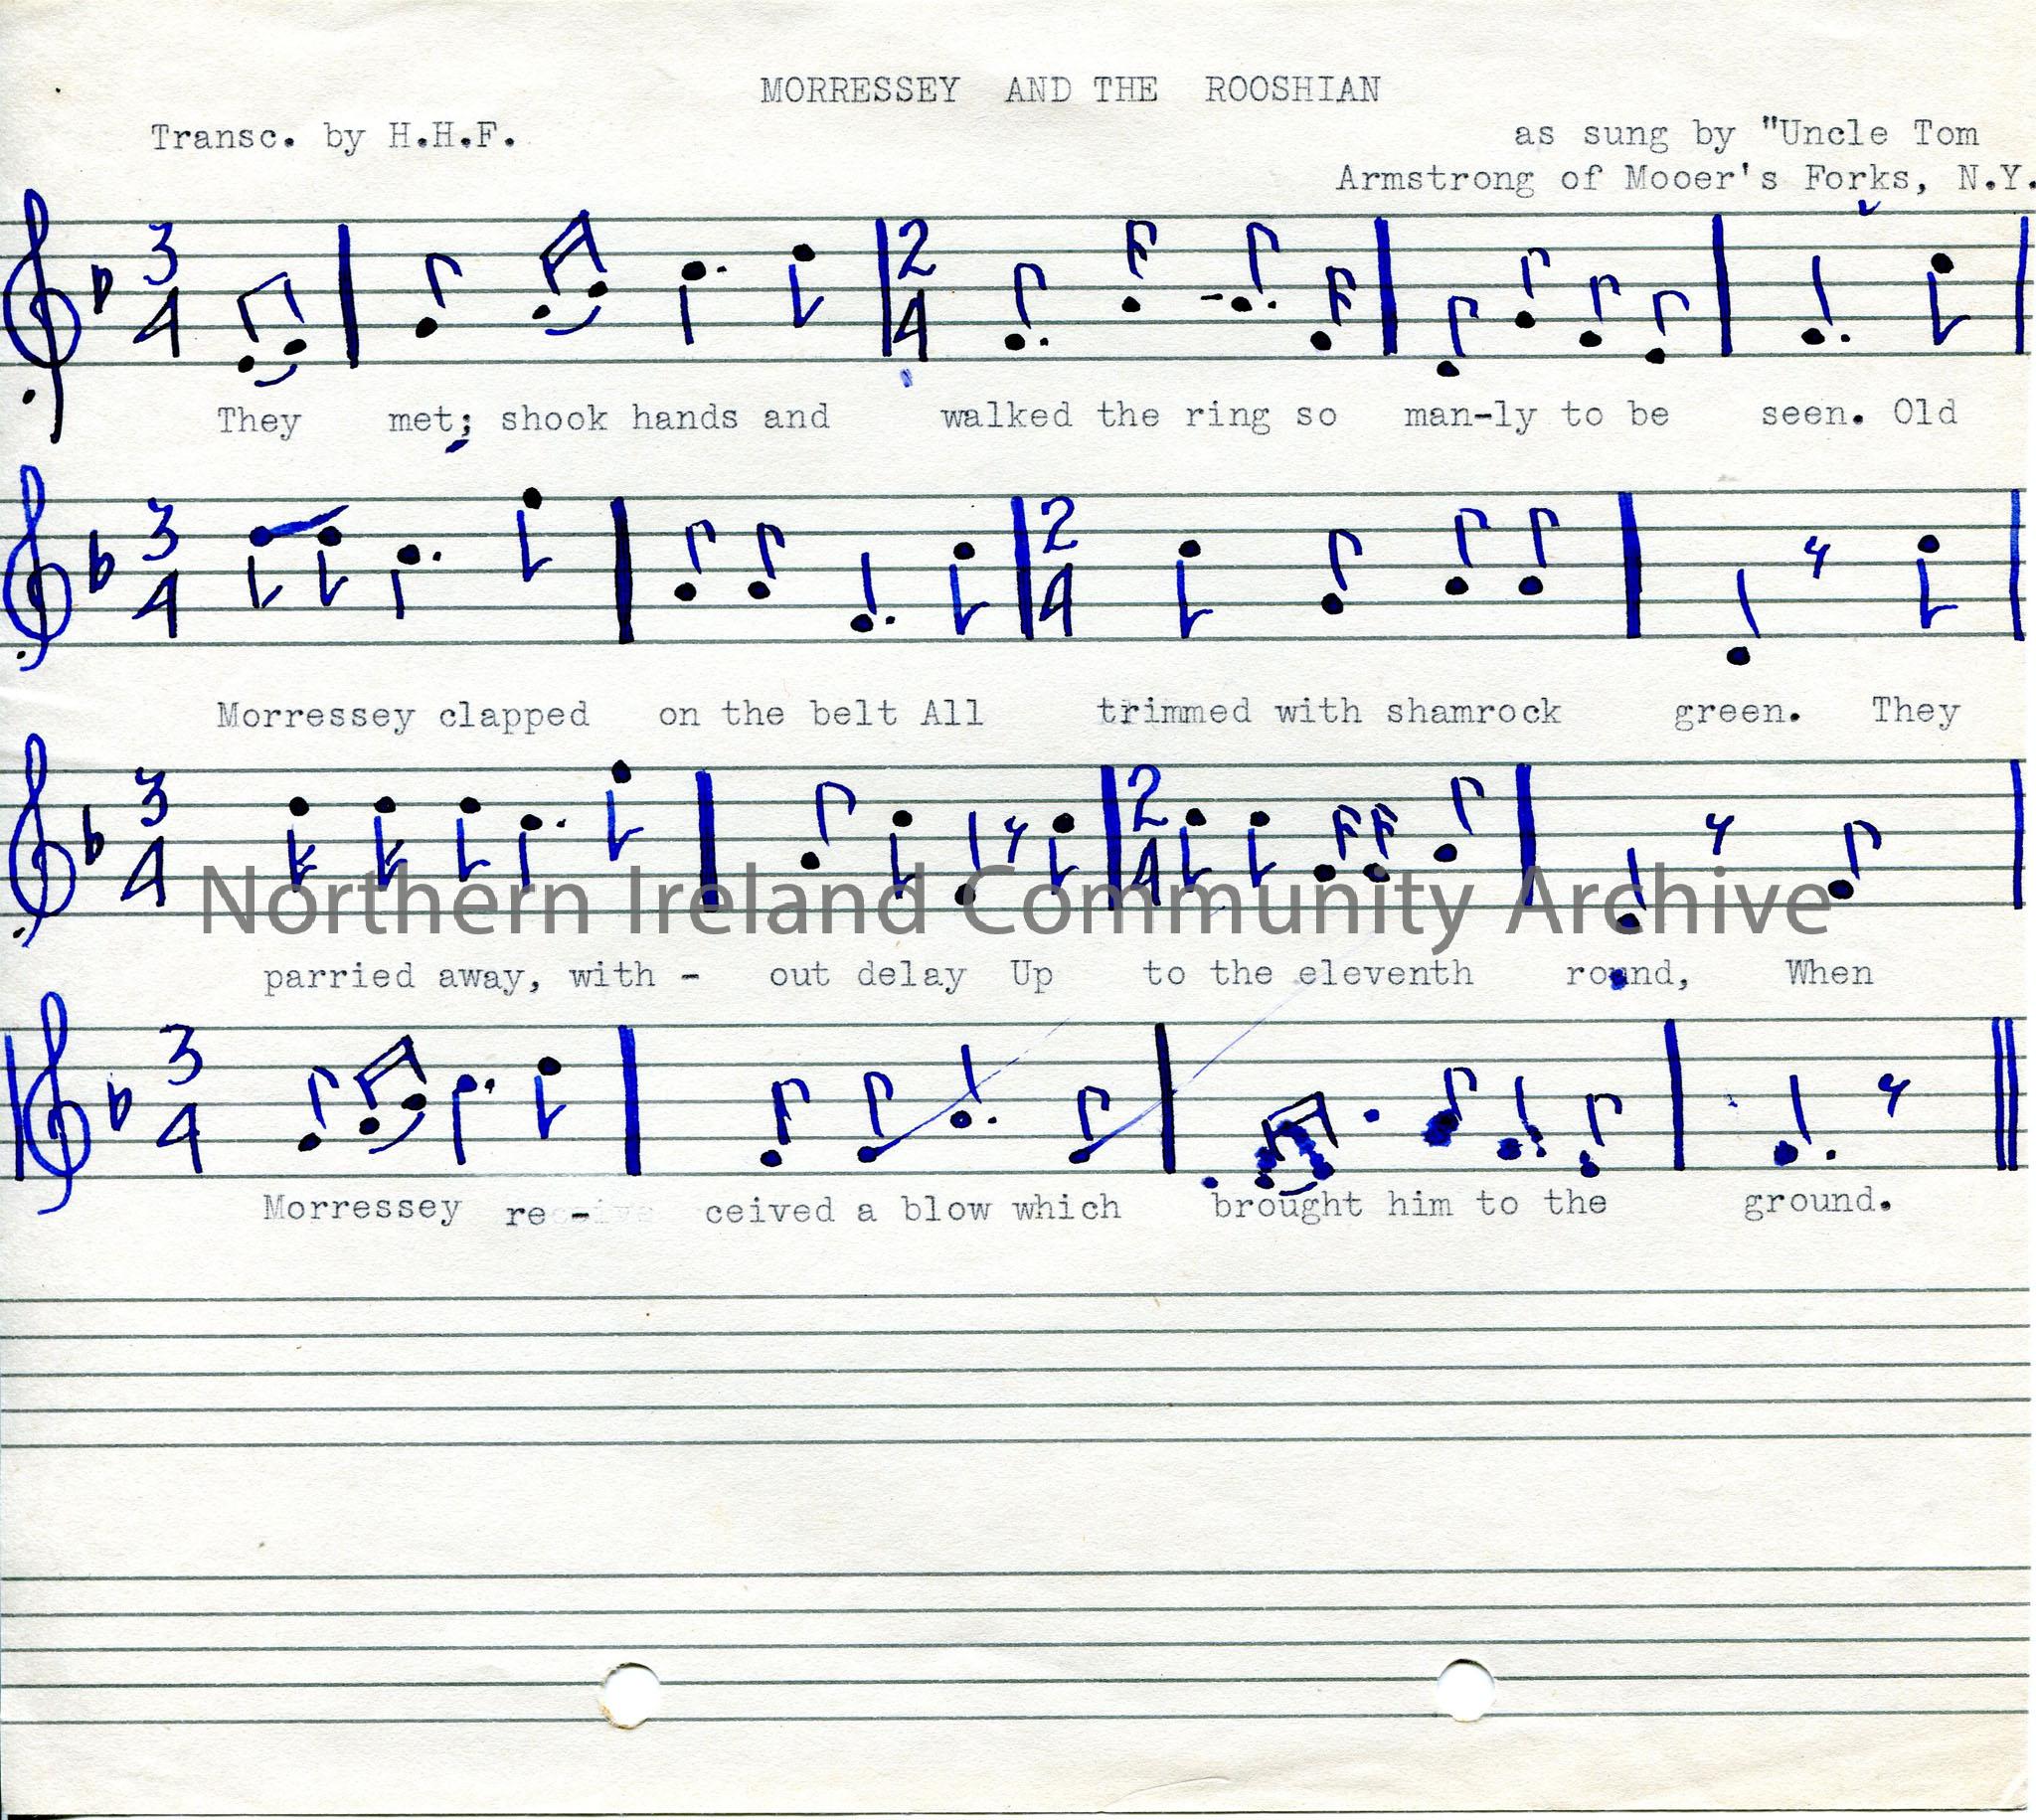 MORRESSEY AND THE ROOSHIAN
Transc. by H.H.F.
as sung by "Uncle Tom
Armstrong of Mooer's Forks, N.Y.
3 4 2 4
They met; shook hands and walked the ring so man-ly to be seen. Old
3 4 2 4
Morressey clapped on the belt All trimmed with shamrock green. They
3 4 2 4
Northern Ireland Community Archive
parried away, with - out delay Up to the eleventh round, When
3 4
Morressey re - ceived a blow which brought him to the ground.